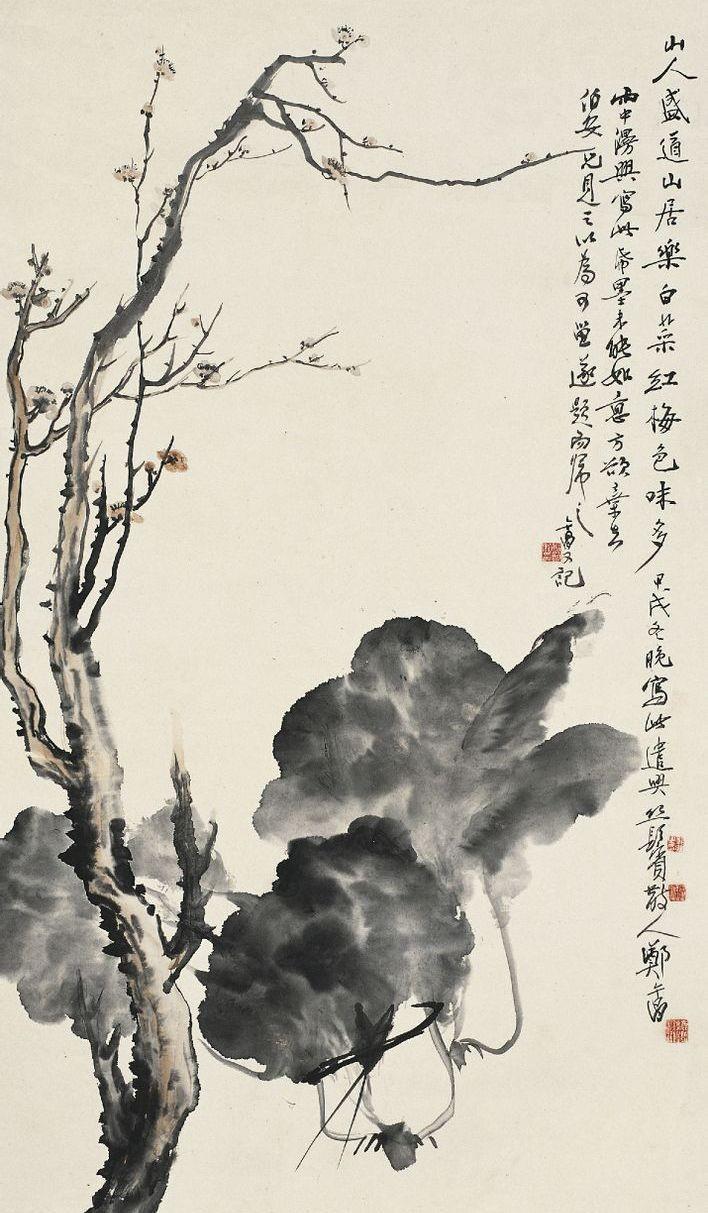 山人盛道山居樂白菜紅梅色味多甲戌冬晚寫此遣興絲鬢散人鄭
雨中漫興寫此希墨未能如意方欲棄去
伯安兄見之以為可留遂題而歸之 又記